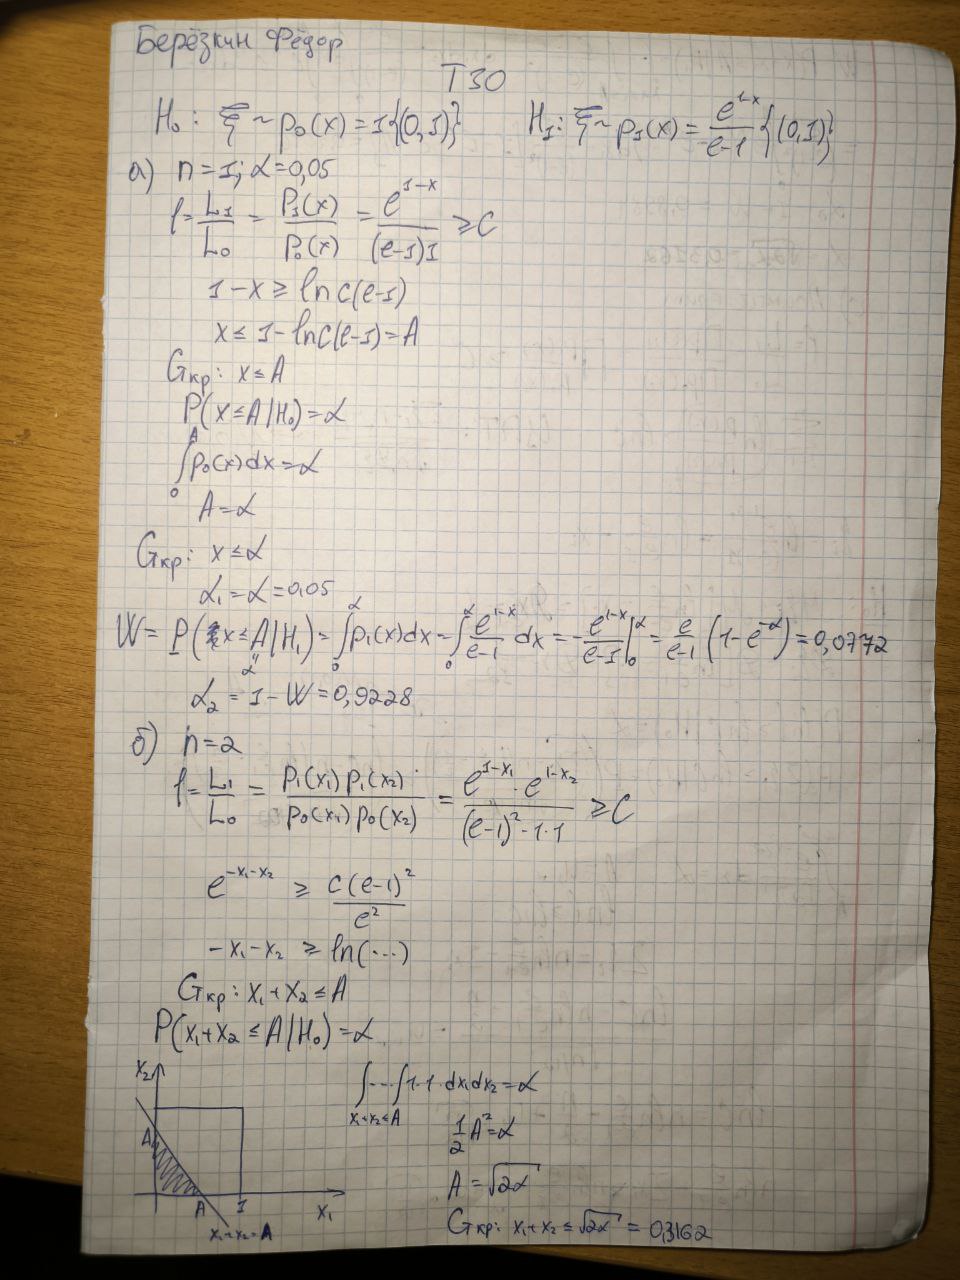 Берёзкин Фёдор
Т30
H₀: ξ ~ p₀(x) = 1{(0,1)} H₁: ξ ~ p₁(x) = e^{1-x}/(e-1) {(0,1)}
а) n = 1; α = 0,05
l = L₁/L₀ = p₁(x)/p₀(x) = e^{1-x}/((e-1)1) ≥ C
1-x ≥ ln C(e-1)
x ≤ 1 - ln C(e-1) = A
Gкр: x ≤ A
P(x ≤ A | H₀) = α
∫₀^A p₀(x)dx = α
A = α
Gкр: x ≤ α
α₁ = α = 0,05
W = P(x ≤ A | H₁) = ∫₀^α p₁(x)dx = ∫₀^α e^{1-x}/(e-1) dx = -e^{1-x}/(e-1) |₀^α = e/(e-1) (1-e^{-α}) = 0,0772
α
α₂ = 1 - W = 0,9228
б) n = 2
l = L₁/L₀ = p₁(x₁)p₁(x₂)/(p₀(x₁)p₀(x₂)) = e^{1-x₁}·e^{1-x₂}/((e-1)²·1·1) ≥ C
e^{-x₁-x₂} ≥ C(e-1)²/e²
-x₁-x₂ ≥ ln(...)
Gкр: x₁+x₂ ≤ A
P(x₁+x₂ ≤ A | H₀) = α
x₂
∫...∫_{x₁+x₂≤A} 1·1·dx₁dx₂ = α
A
½A² = α
A = √2α
A 1 x₁
x₁+x₂=A
Gкр: x₁+x₂ ≤ √2α = 0,3162